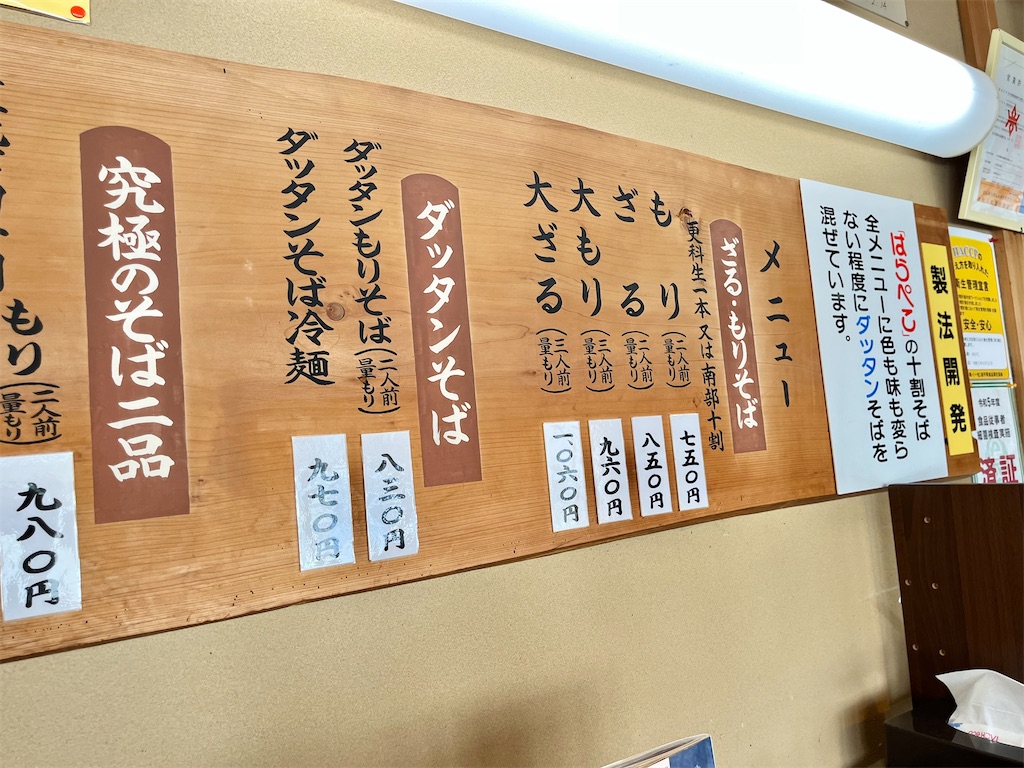 製法開発
「はらぺこ」の十割そば
全メニューに色も味も変ら
ない程度にダッタンそばを
混ぜています。
メニュー
ざる・もりそば
更科生一本又は南部十割
もり(二人前量もり)
七五〇円
ざる(二人前量もり)
八五〇円
大もり(三人前量もり)
九六〇円
大ざる(三人前量もり)
一〇六〇円
ダッタンそば
ダッタンもりそば(二人前量もり)
八三〇円
ダッタンそば冷麺
九七〇円
究極のそば二品
もり(二人前量もり)
九八〇円
安全・安心
令和5年度
食品従事者
検便検査実施
済証